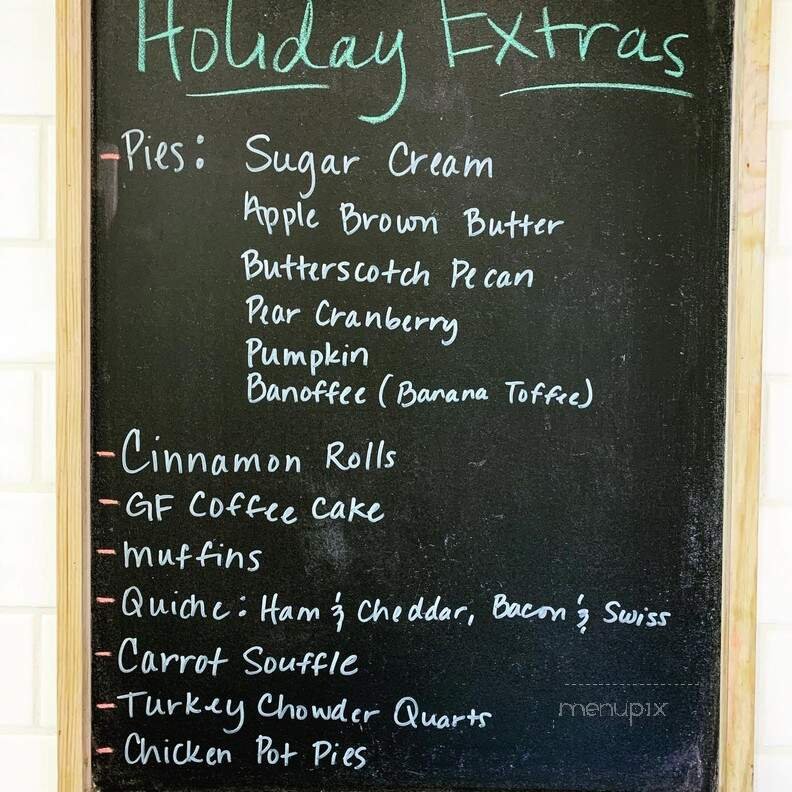 Holiday Extras
- Pies: Sugar Cream
Apple Brown Butter
Butterscotch Pecan
Pear Cranberry
Pumpkin
Banoffee (Banana Toffee)
- Cinnamon Rolls
- GF Coffee Cake
- muffins
- Quiche: Ham & Cheddar, Bacon & Swiss
- Carrot Souffle
- Turkey Chowder Quarts
- Chicken Pot Pies
menupix